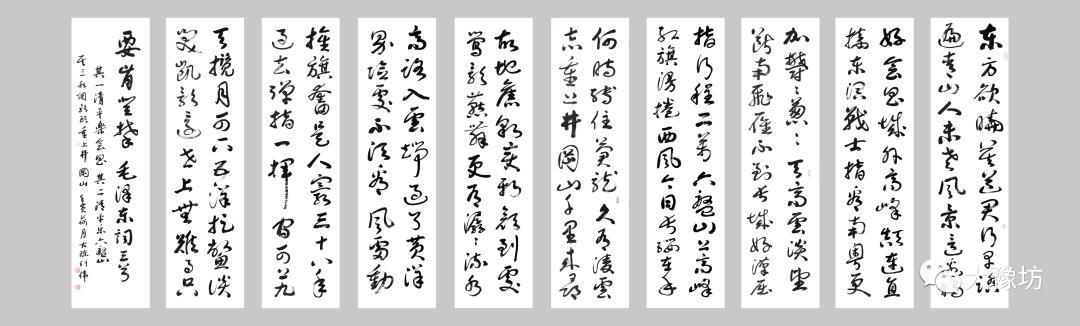 东方欲晓莫道君行早踏
遍青山人未老风景这边独
好会昌城外高峰颠连直
接东溟战士指看南粤更
加郁郁葱葱天高雲淡望
断南飞雁不到长城好汉屈
指行程二萬六盤山上高峰
红旗漫捲西风今日长缨在手
何时缚住苍龙久有凌雲
志重上井岡山千里来寻
故地旧貌变新颜到处
莺歌燕舞更有潺潺流水
高路入雲端过了黄洋
界险处不须看风雷動
旌旗奮是人寰三十八年
过去弹指一挥间可上九
天揽月可下五洋捉鳖谈
笑凯歌还世上無難事只
要肯登攀 毛泽东词三首
其一清平乐会昌其二清平乐六盘山
其三水调歌头重上井岡山
大豫坊